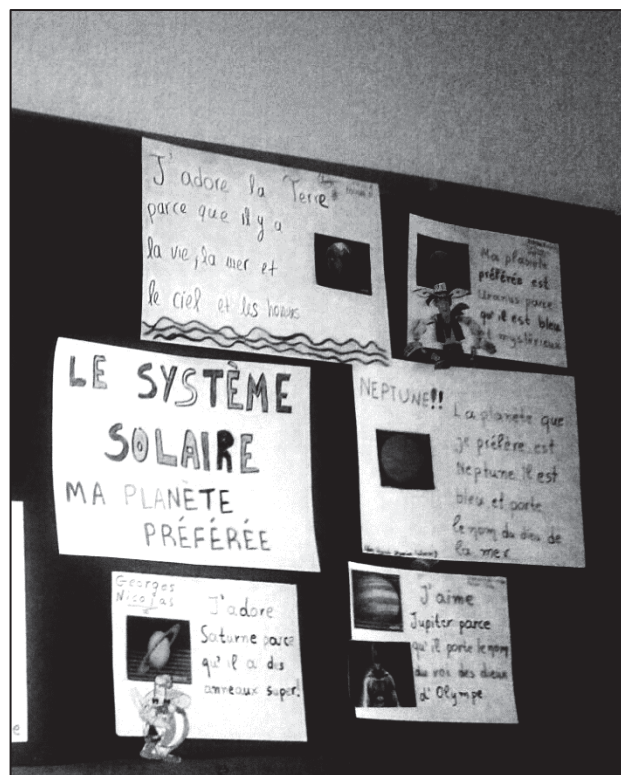 J'adore la Terre
parce que il y a
la vie, la mer et
le ciel et les
Ma planète
préférée est
Uranus parce
qu'il est bleu
et mystérieux
LE SYSTÈME
SOLAIRE
MA PLANÈTE
PRÉFÉRÉE
NEPTUNE!!
La planète que
je préfère est
Neptune il est
bleu et porte
le nom du dieu de
la mer
Georges
Nicolas
J'adore
Saturne parce
qu'il a des
anneaux super!
J'aime
Jupiter parce
qu'il porte le nom
du roi des dieux
d'Olympe
e